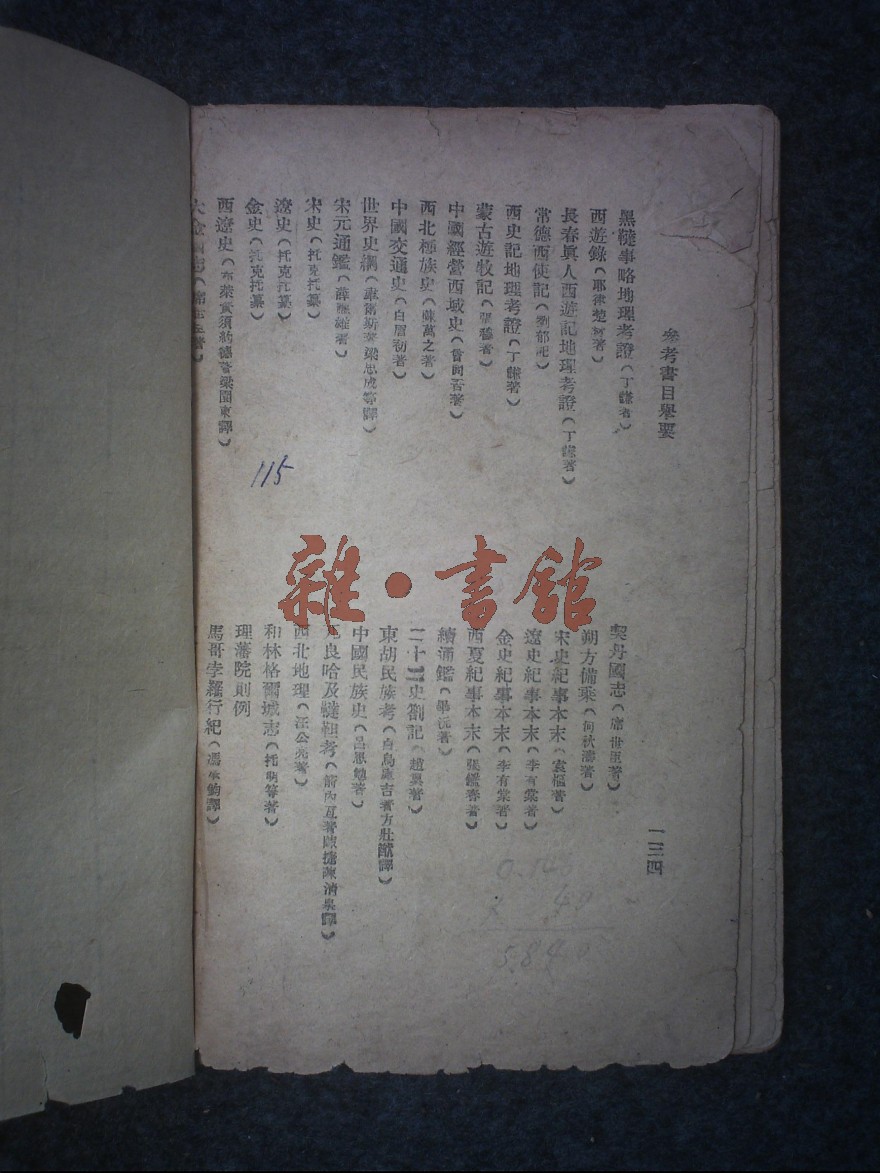 參考書目舉要
一三四
黑韃事略地理考證(丁謙著)
西遊錄(耶律楚材著)
長春眞人西遊記地理考證(丁謙著)
常德西使記(劉郁記)
西史記地理考證(丁謙著)
蒙古遊牧記(張穆著)
中國經營西域史(曾問吾著)
西北種族史(蘇萬之著)
中國交通史(白眉初著)
世界史綱(韋爾斯著梁思成等譯)
宋元通鑑(薛 著)
宋史(托克托纂)
遼史(托克托纂)
金史(托克托纂)
西遼史(布萊資須納德著梁園東譯)
大金國志
契丹國志(著)
朔方備乘(何秋濤著)
宋史紀事本末(袁樞著)
遼史紀事本末(李有棠著)
金史紀事本末(李有棠著)
西夏紀事本末(張鑑春著)
續通鑑(畢沅著)
二十二史劄記(趙翼著)
東胡民族考(白鳥庫吉著方壯猷譯)
中國民族史(呂思勉著)
兀良哈及韃靼考(箭內亙著陳捷陳清泉譯)
西北地理(汪公亮著)
和林格爾城志(托明等著)
理藩院則例
馬哥孛羅行紀(馮承鈞譯)
115
雜·書館
0.14
× 40
5.840